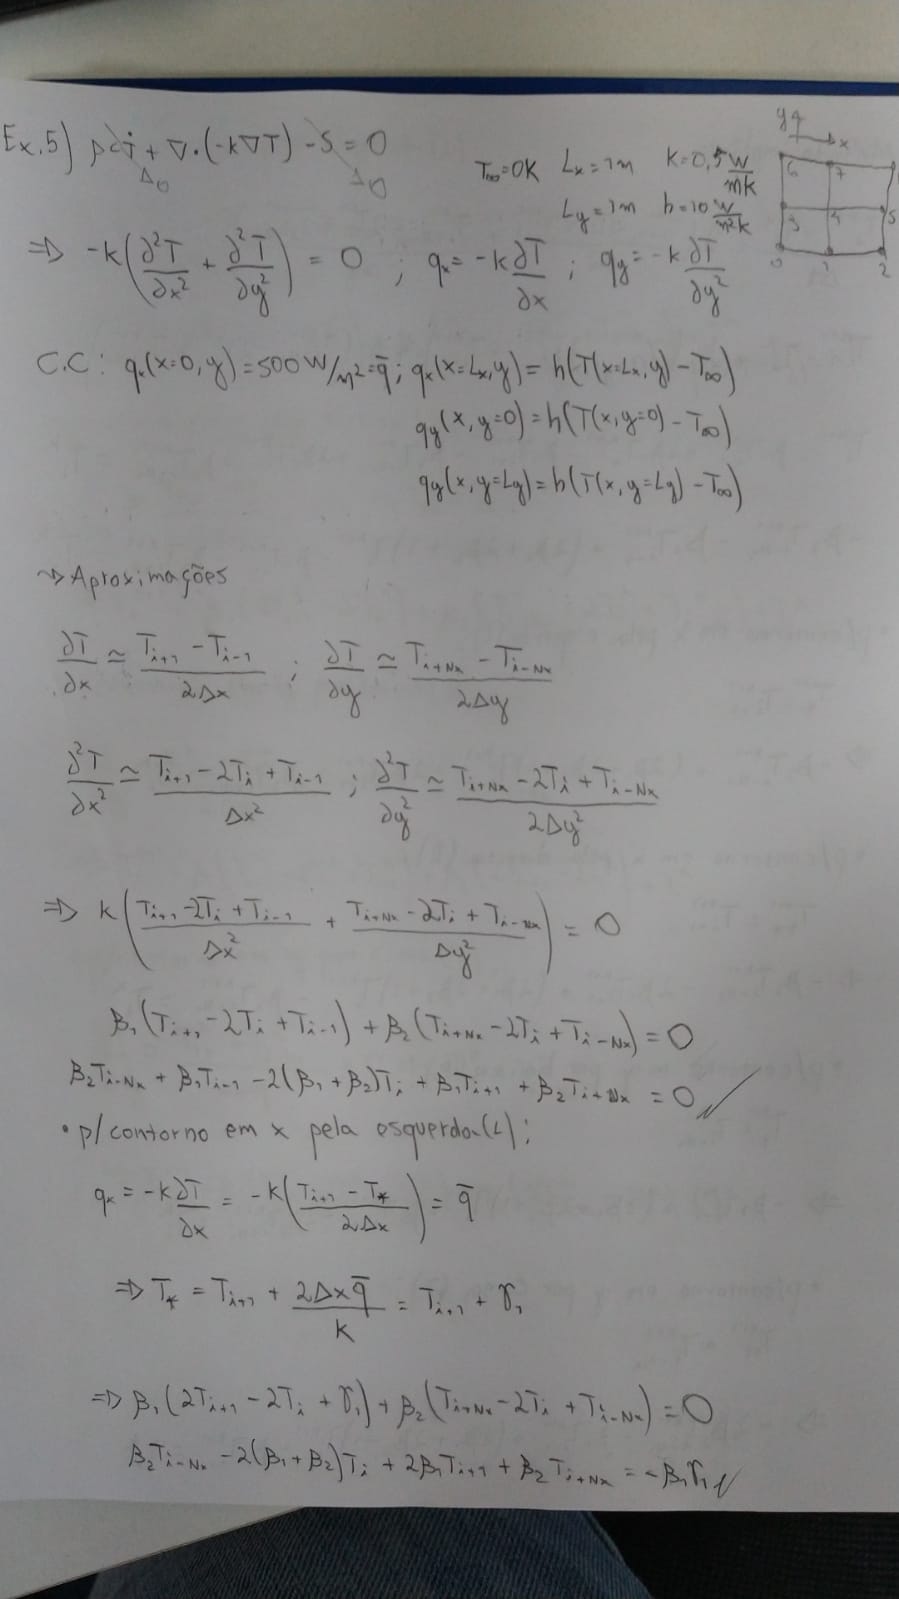 Ex.5) ρcṪ + ∇·(-k∇T) - S = 0
→0 →0
T∞=0K Lx=1m k=0,5 W/mK
Ly=1m h=10 W/m²K
y x
6 7
3 4 5
0 1 2
⇒ -k(∂²T/∂x² + ∂²T/∂y²) = 0 ; qx = -k ∂T/∂x ; qy = -k ∂T/∂y²
C.C: qx(x=0,y) = 500 W/m² = q̄ ; qx(x=Lx,y) = h(T(x=Lx,y) - T∞)
qy(x,y=0) = h(T(x,y=0) - T∞)
qy(x,y=Ly) = h(T(x,y=Ly) - T∞)
⇝ Aproximações
∂T/∂x ≃ (Ti+1 - Ti-1)/2Δx ; ∂T/∂y ≃ (Ti+Nx - Ti-Nx)/2Δy
∂²T/∂x² ≃ (Ti+1 - 2Ti + Ti-1)/Δx² ; ∂²T/∂y² ≃ (Ti+Nx - 2Ti + Ti-Nx)/2Δy²
⇒ k((Ti+1 - 2Ti + Ti-1)/Δx² + (Ti+Nx - 2Ti + Ti-Nx)/Δy²) = 0
β1(Ti+1 - 2Ti + Ti-1) + β2(Ti+Nx - 2Ti + Ti-Nx) = 0
β2Ti-Nx + β1Ti-1 - 2(β1 + β2)Ti + β1Ti+1 + β2Ti+Nx = 0
• p/contorno em x pela esquerda(L):
qx = -k ∂T/∂x = -k((Ti+1 - T*)/2Δx) = q̄
⇒ T* = Ti+1 + 2Δxq̄/k = Ti+1 + γ1
⇒ β1(2Ti+1 - 2Ti + γ1) + β2(Ti+Nx - 2Ti + Ti-Nx) = 0
β2Ti-Nx - 2(β1 + β2)Ti + 2β1Ti+1 + β2Ti+Nx = -β1γ1